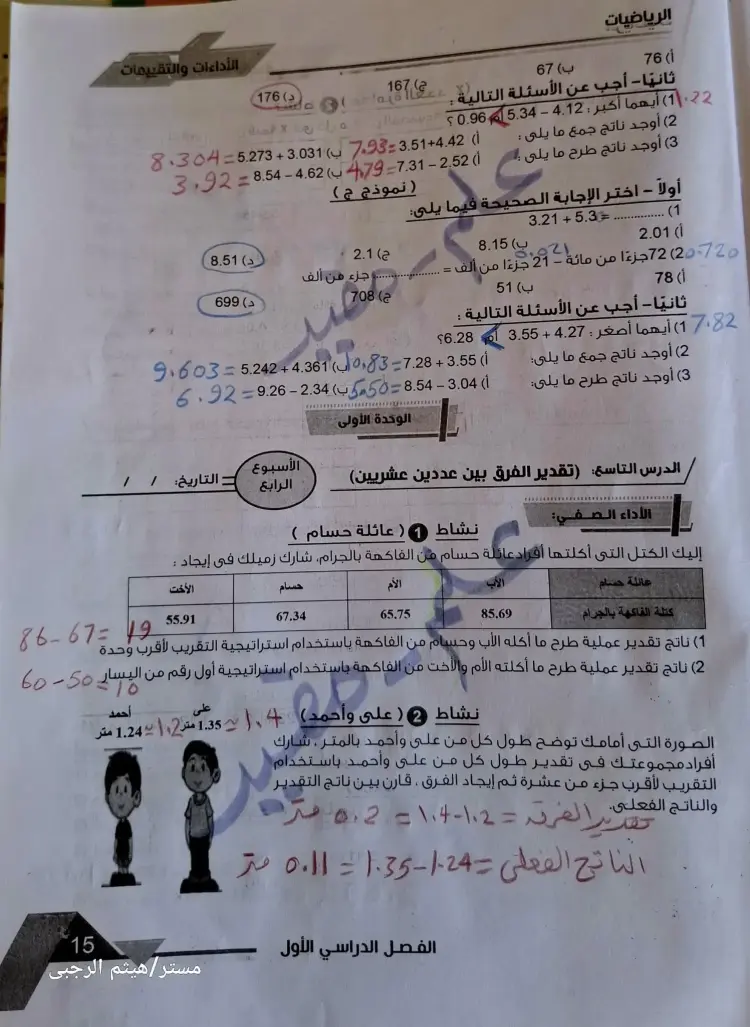 الرياضيات
الأداءات والتقييمات
أ) 76 ب) 67 ج) 167 د) 176
ثانيًا- أجب عن الأسئلة التالية :
1) أيهما أكبر : 4.12 – 5.34 أم 0.96 ؟ 1.22
2) أوجد ناتج جمع ما يلى : أ) 3.51+4.42 =7.93 ب) 5.273 + 3.031 =8.304
3) أوجد ناتج طرح ما يلى : أ) 7.31 – 2.52 =4.79 ب) 8.54 – 4.62 =3.92
( نموذج ج )
أولاً – اختر الإجابة الصحيحة فيما يلى:
1) ............ = 3.21 + 5.3
أ) 2.01 ب) 8.15 ج) 2.1 د) 8.51
2) 72جزءًا من مائة – 21 جزءًا من ألف = .................. جزء من ألف 0.720 0.021
أ) 78 ب) 51 ج) 708 د) 699
ثانيًا- أجب عن الأسئلة التالية :
1) أيهما أصغر : 4.27 + 3.55 أم 6.28 ؟ 7.82
2) أوجد ناتج جمع ما يلى: أ) 7.28 + 3.55 =10.83 ب) 5.242 + 4.361 =9.603
3) أوجد ناتج طرح ما يلى: أ) 8.54 – 3.04 =5.50 ب) 9.26 – 2.34 =6.92
الوحدة الأولى
الدرس التاسع: (تقدير الفرق بين عددين عشريين) الأسبوع الرابع التاريخ: / /
الأداء الصفي:
نشاط 1 ( عائلة حسام )
إليك الكتل التى أكلتها أفراد عائلة حسام من الفاكهة بالجرام، شارك زميلك فى إيجاد :
عائلة حسام الأب الأم حسام الأخت
كتلة الفاكهة بالجرام 85.69 65.75 67.34 55.91
1) ناتج تقدير عملية طرح ما أكله الأب وحسام من الفاكهة باستخدام استراتيجية التقريب لأقرب وحدة
86-67= 19
2) ناتج تقدير عملية طرح ما أكلته الأم والأخت من الفاكهة باستخدام استراتيجية أول رقم من اليسار
60-50=10
نشاط 2 ( على وأحمد )
على أحمد
1.35 متر ≈ 1.4 1.24 متر ≈ 1.2
الصورة التى أمامك توضح طول كل من على وأحمد بالمتر، شارك
أفراد مجموعتك فى تقدير طول كل من على وأحمد باستخدام
التقريب لأقرب جزء من عشرة ثم إيجاد الفرق، قارن بين ناتج التقدير
والناتج الفعلى.
تقدير الفرق = 1.4-1.2 = 0.2 متر
الناتج الفعلى = 1.35-1.24 = 0.11 متر
علم_مفيد
علم_مفيد
الفصل الدراسي الأول
15
مستر/هيثم الرجبى